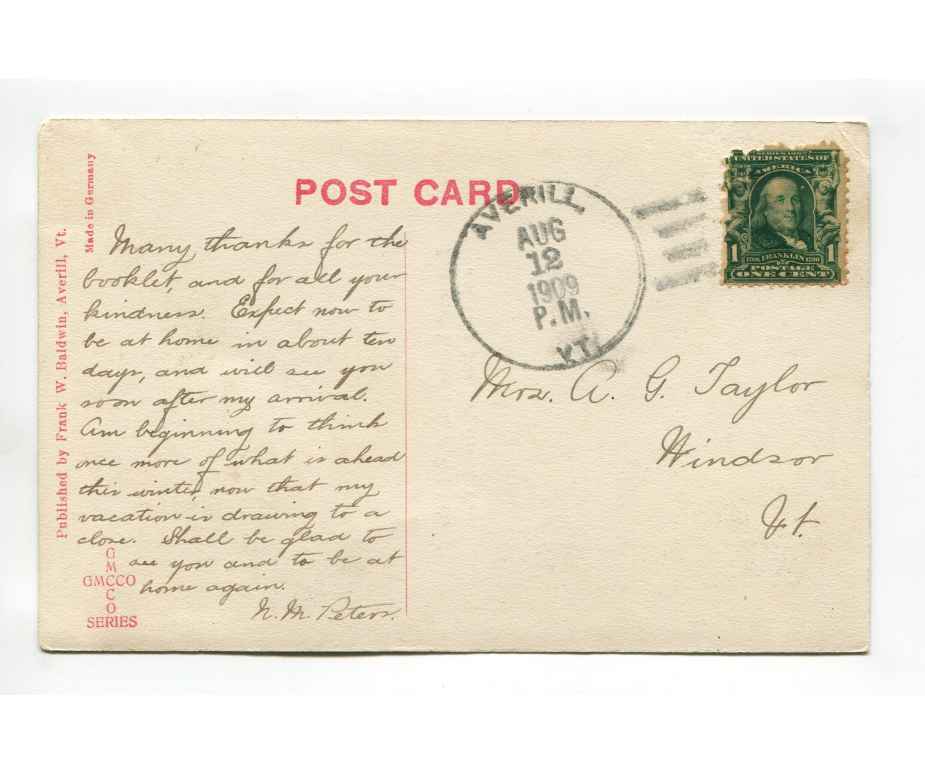 POST CARD
Made in Germany
Published by Frank W. Baldwin, Averill, Vt.
Many thanks for the
booklet, and for all your
kindness. Expect now to
be at home in about ten
days, and will see you
soon after my arrival.
Am beginning to think
once more of what is ahead
this winter now that my
vacation is drawing to a
close. Shall be glad to
see you and to be at
home again.
N. M. Peters.
GMCCO
GMCCO
SERIES
AVERILL,
AUG
12
1909
P.M.
VT.
SERIES 1902
UNITED STATES OF
AMERICA
1 1
1706 FRANKLIN 1790
POSTAGE
ONE CENT
Mrs. A. G. Taylor
Windsor
Vt.